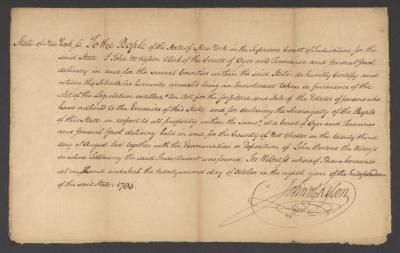 State of New York ss. To the People of the State of New York in the Supreme Court of Judicature for the
said State I John McKesson Clerk of the Courts of Oyer and Terminer and general Gaol
delivery in and for the several Counties within the said State do humbly Certify and
return that the Schedule hereunto annexed being an Inventment taken in pursuance of the
Act of the Legislature entitled "An Act for the forfeiture and Sale of the Estates of persons who
have adhered to the Enemies of this State, and for declaring the Sovereignty of the People
of this State in respect to all property within the same" at a Court of Oyer and Terminer
and General Gaol delivery held in and for the County of West Chester on the twenty third
day of August last together with the Examination or Deposition of John the Witness
on whose Testimony the said Indictment was found. In Witness whereof I have hereunto
set my Hand and Seal the twenty second day of October in the eighth year of the Independence
of the said State 1783.
John McKesson